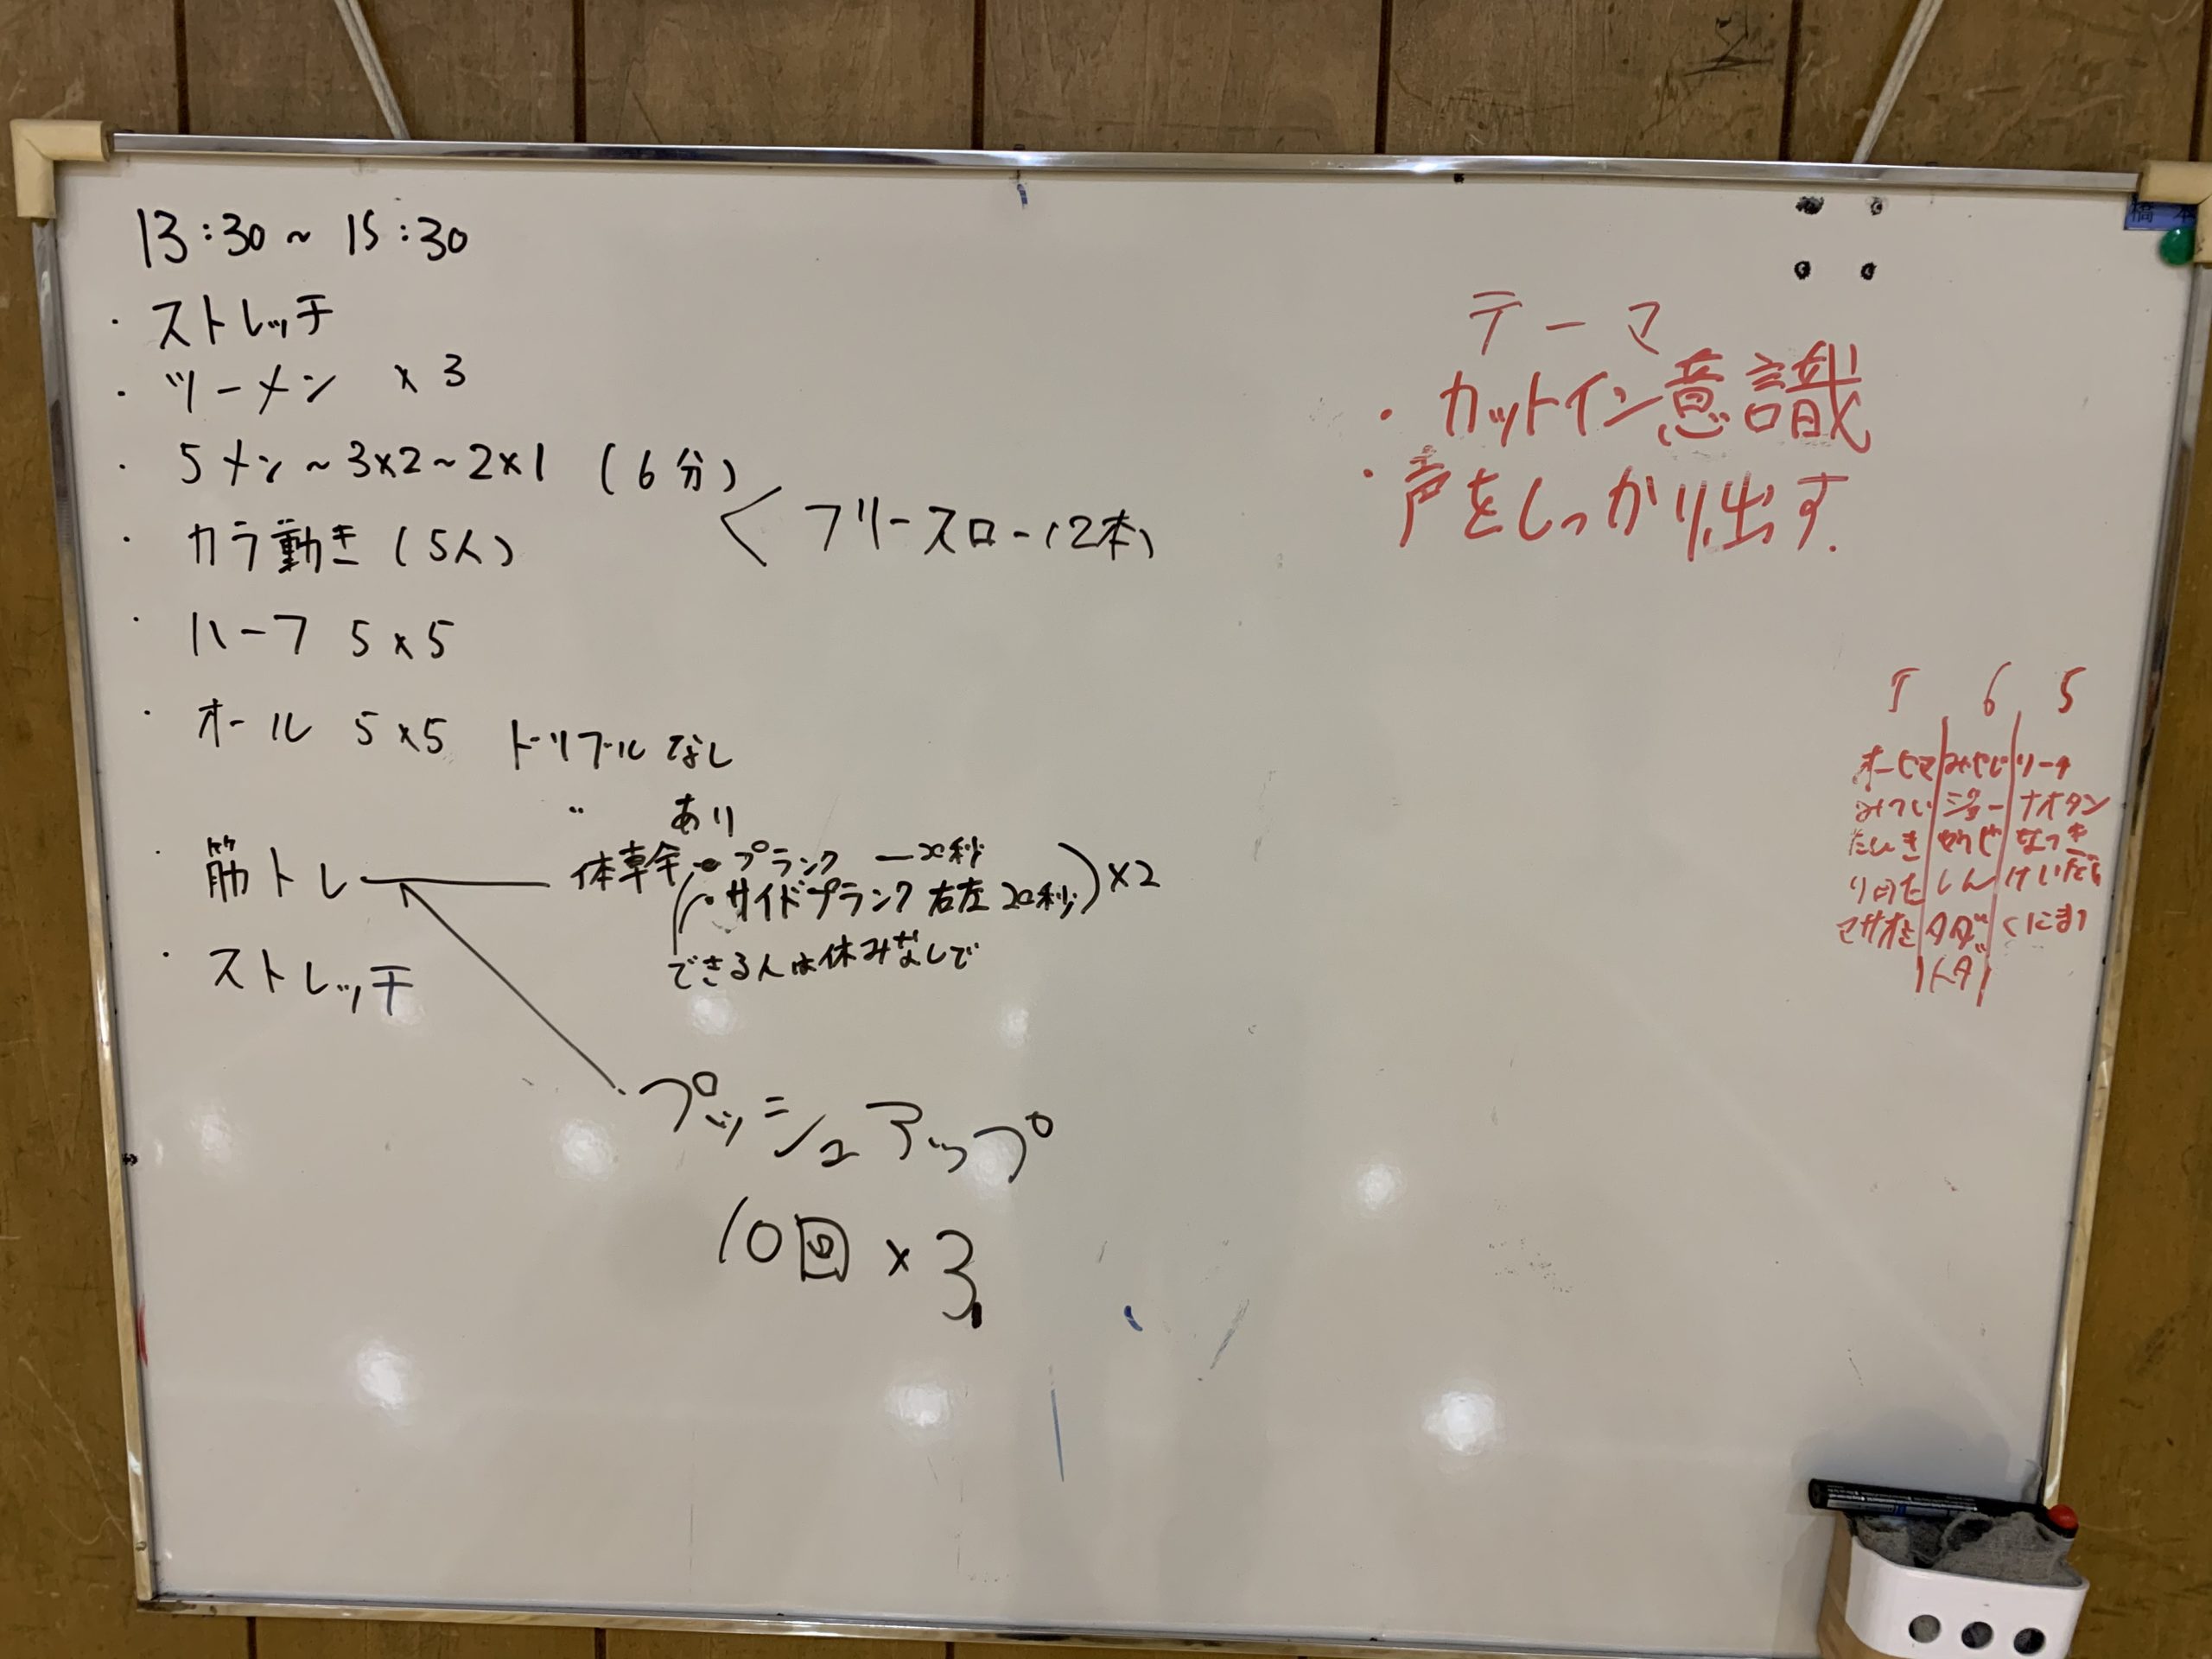 13:30～15:30
・ストレッチ
・ツーメン ×3
・5メン～3×2～2×1 (6分)
・カラ動き(5人)
＜フリースロー(2本)
・ハーフ 5×5
・オール 5×5 ドリブルなし
〃 あり
・筋トレ
体幹
・プランク
・サイドプランク 右左 20秒
)×2
できる人は休みなしで
・ストレッチ
・プッシュアップ
10回×3
テーマ
・カットイン意識
・声をしっかり出す.
5 6 5
リーチ
ジョー ナオタン
たいき なつき
しん
タダ
トダ
橋本